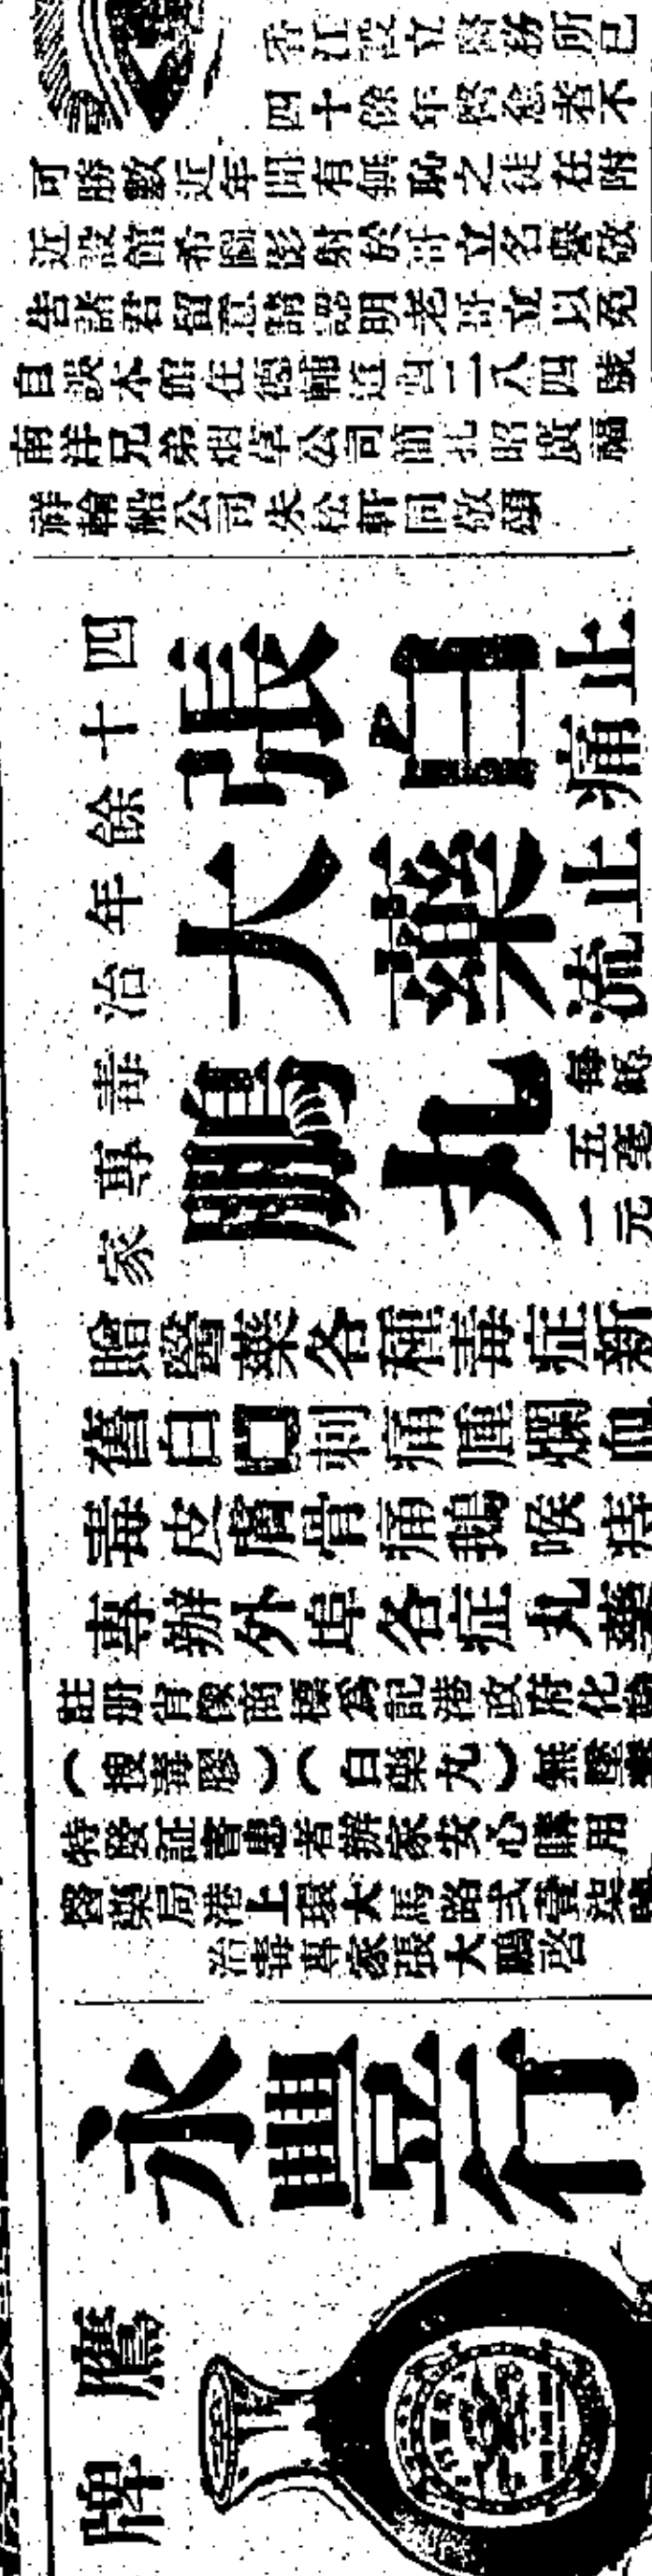 香江設立醫務所已
四十餘年醫愈者不
可勝數近年間有無恥之徒在附
近設館希圖影射於哥立名譽敬
告諸君留意請認明老哥立以免
自誤本館在德輔道西二八四號
南洋兄弟烟草公司簡孔昭廣福
祥輪船公司朱松軒同敬頌
四十餘年治毒專家
張大鵬
白藥丸
止痛止流
五毫
一元
贈醫藥各種毒症新
舊白囗刺痛腫爛血
毒皮膚骨痛鵝喉痔
專辦外埠各症丸藥
註册肖像商標爲記港政府化驗
(搜毒膠)(白藥丸)無墜
特發証書患者辦家安心購用
醫藥局港上環大馬路弍壹柒號
治毒專家張大鵬啓
永豐行
鷹牌